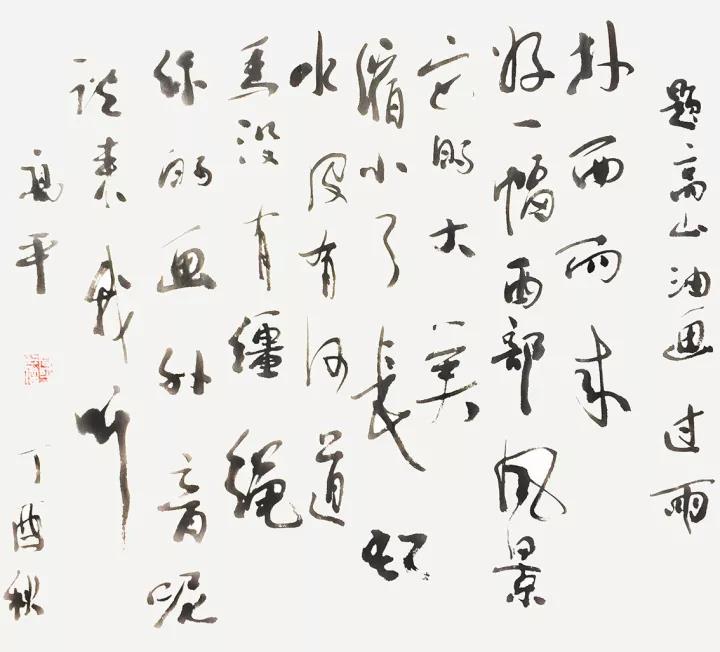 题高山油画过雨
扑面而来
好一幅西部风景
它的大美
缩小了长
水没有河道
马没有缰绳
你的画外音呢
说来我听
平 丁酉秋